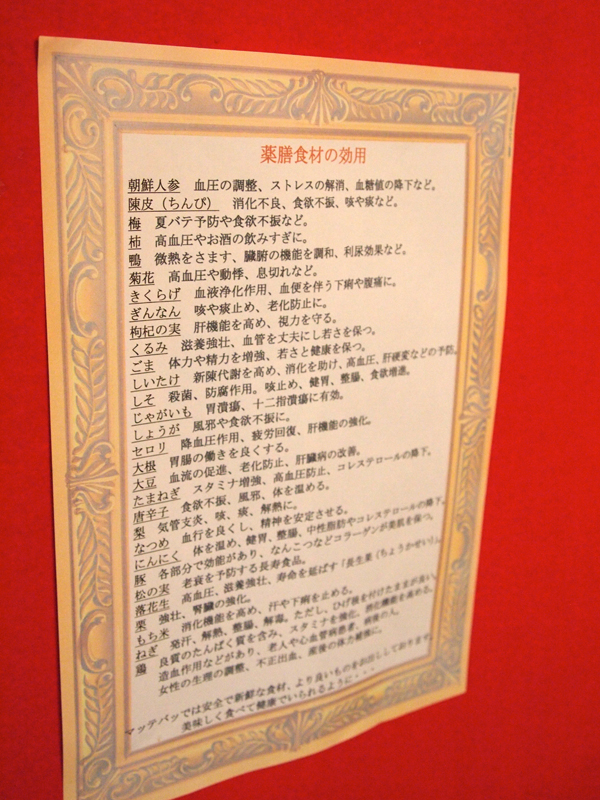 薬膳食材の効用
朝鮮人参　血圧の調整、ストレスの解消、血糖値の降下など。
陳皮（ちんぴ）　消化不良、食欲不振、咳や痰など。
梅　夏バテ予防や食欲不振など。
柿　高血圧やお酒の飲みすぎに。
鴨　微熱をさます、臓腑の機能を調和、利尿効果など。
菊花　高血圧や動悸、息切れなど。
きくらげ　血液浄化作用、血便を伴う下痢や腹痛に。
ぎんなん　咳や痰止め、老化防止に。
枸杞の実　肝機能を高め、視力を守る。
くるみ　滋養強壮、血管を丈夫にし若さを保つ。
ごま　体力や精力を増強、若さと健康を保つ。
しいたけ　新陳代謝を高め、消化を助け、高血圧、肝硬変などの予防。
しそ　殺菌、防腐作用。咳止め、健胃、整腸、食欲増進。
じゃがいも　胃潰瘍、十二指潰瘍に有効。
しょうが　風邪や食欲不振に。
セロリ　降血圧作用、疲労回復、肝機能の強化。
大根　胃腸の働きを良くする。
大豆　血流の促進、老化防止、肝臓病の改善。
たまねぎ　スタミナ増強、高血圧防止、コレステロールの降下。
唐辛子　食欲不振、風邪、体を温める。
梨　気管支炎、咳、痰、解熱に。
なつめ　血行を良くし、精神を安定させる。
にんにく　体を温め、健胃、整腸、中性脂肪やコレステロールの降下。
豚　各部分で効能があり、なんこつなどコラーゲンが美肌を保つ。
松の実　老衰を予防する長寿食品。
落花生　高血圧、滋養強壮、寿命を延ばす「長生菓（ちょうかせい）」。
栗　強壮、腎臓の強化。
もち米　消化機能を高め、汗や下痢を止める。
ねぎ　発汗、解熱、整腸、解毒。ただし、ひげ根を付けたままが良い。
鶏　良質のたんぱく質を含み、スタミナを強化、消化機能を高める、
造血作用などがあり、老人や心血管病患者、病後の人、
女性の生理の調整、不正出血、産後の体力補強に。
マッテバッでは安全で新鮮な食材、より良いものをお出ししております。
美味しく食べて健康でいられるように・・・